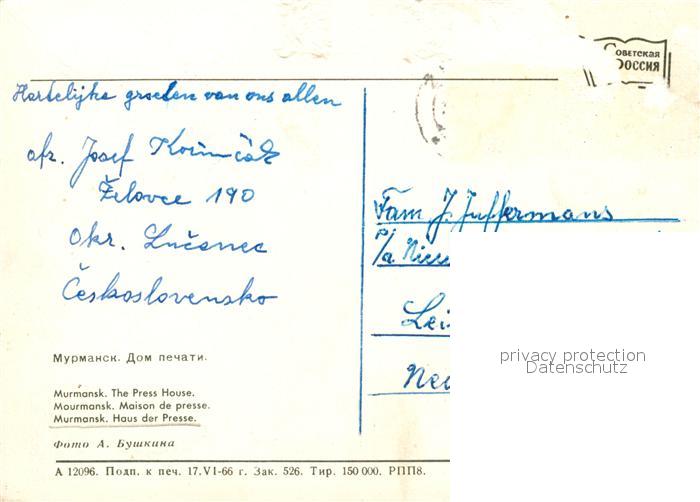 Советская
Россия
Hartelijke groeten van ons allen
afz. Josef
Želovce 190
Okr. Lučenec
Československo
Fam J. Juffermans
p/a
Мурманск. Дом печати.
Murmansk. The Press House.
Mourmansk. Maison de presse.
Murmansk. Haus der Presse.
Фото А. Бушкина
А 12096. Подп. к печ. 17.VI-66 г. Зак. 526. Тир. 150 000. РПП8.
privacy protection
Datenschutz